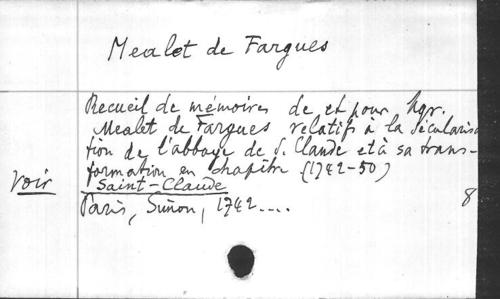 Mealet de Fargues
Recueil de mémoires de et pour Mgr.
Mealet de Fargues relatifs à la sécularisa
tion de l'abbaye de S. Claude et à sa trans-
formation en chapitre (1742-50)
voir Saint-Claude
Paris, Simon, 1742.... 8